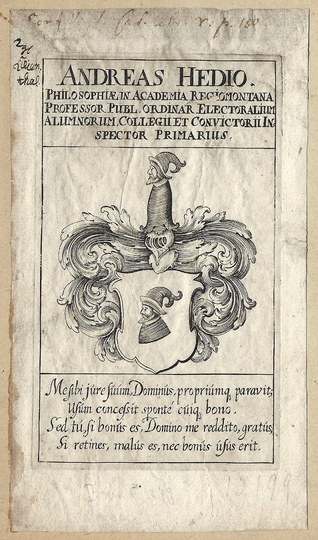 ANDREAS HEDIO.
PHILOSOPHIÆ, IN ACADEMIA REGIOMONTANA
PROFESSOR PUBL. ORDINAR. ELECTORALIUM
ALUMNORUM, COLLEGII ET CONVICTORII IN-
SPECTOR PRIMARIUS.
Me sibi jure suum, Dominus, propriumq, paravit;
Usum concessit sponte cuiq, bono.
Sed tu, si bonus es, Domino me reddito, gratus,
Si retines, malus es, nec bonus usus erit.